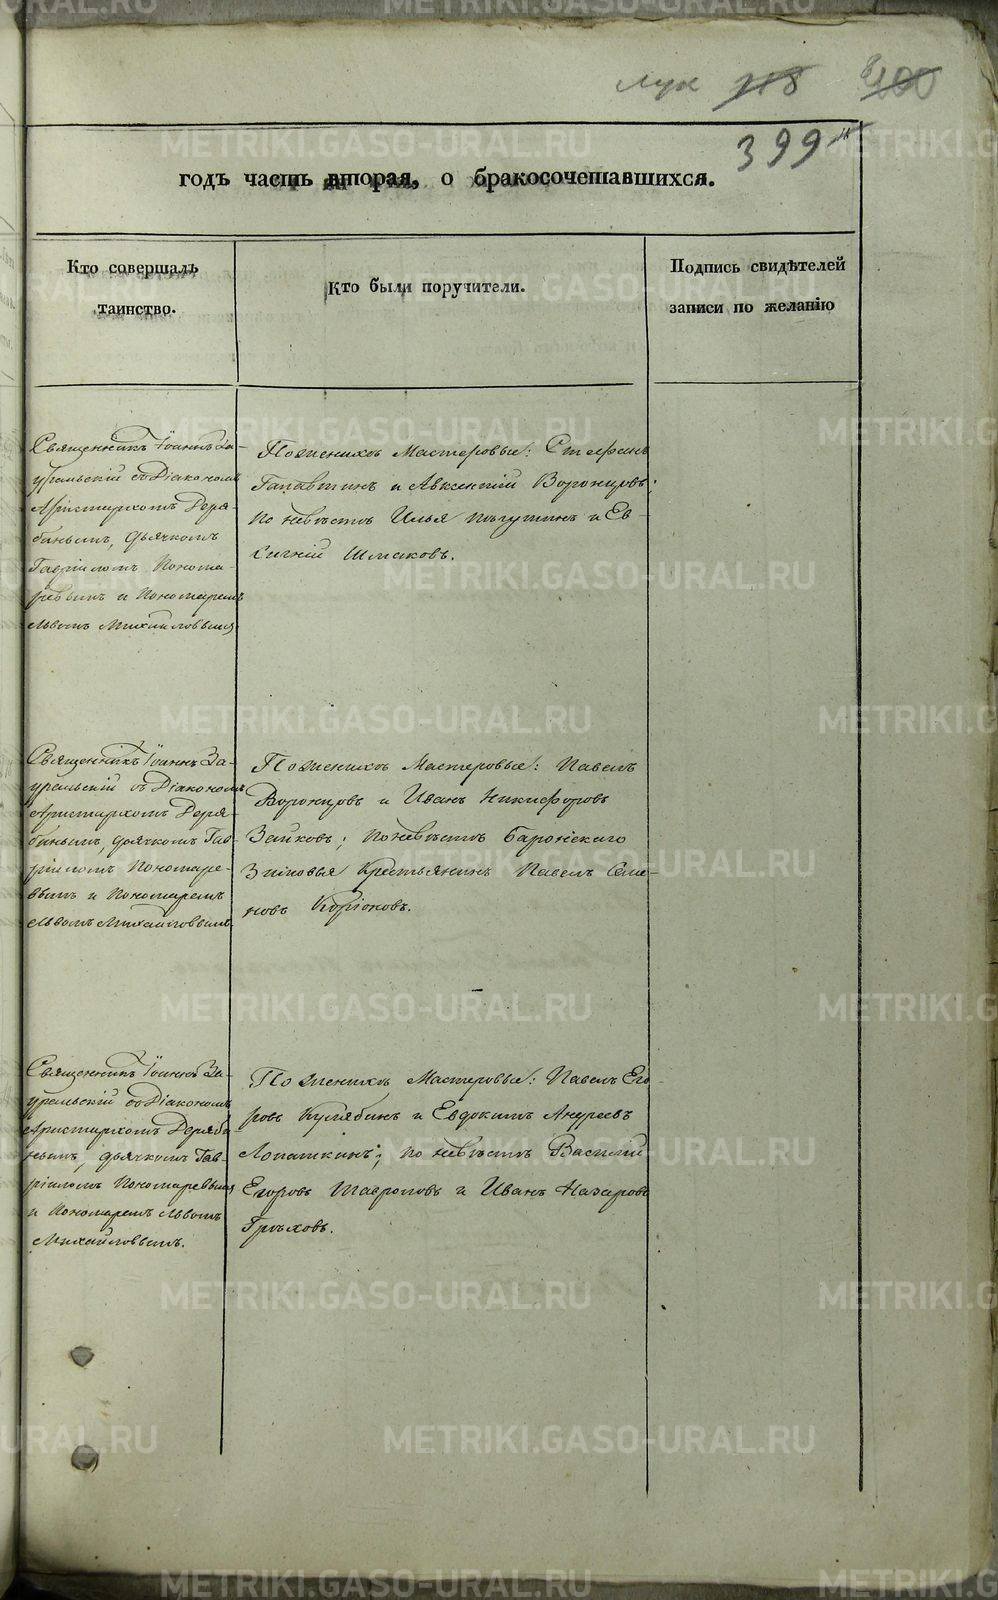 118 100
399
годъ часть вторая, о бракосочетавшихся.
Кто совершалъ
таинство.
Кто были поручители.
Подпись свидѣтелей
записи по желанію
Священникъ Іоаннъ За-
уральскій съ Діакономъ
Аристархомъ Деря-
бинымъ, дьячкомъ
Гавріиломъ Понома-
ревымъ и Пономаремъ
Львомъ Михайловымъ
По женихѣ Мастеровые: Стефанъ
и Авксентій Воронцовъ;
по невѣстѣ Илья и Ев-
сигній Шмаковъ.
Священникъ Іоаннъ За-
уральскій съ Діакономъ
Аристархомъ Деря-
бинымъ, дьячкомъ Гав-
ріиломъ Пономаре-
вымъ и Пономаремъ
Львомъ Михайловымъ
По женихѣ Мастеровые: Павелъ
Воронцовъ и Иванъ Никифоровъ
Зайковъ; по невѣстѣ
Крестьянинъ Павелъ Семе-
новъ
Священникъ Іоаннъ За-
уральскій съ Діакономъ
Аристархомъ Деряби-
нымъ, дьячкомъ Гав-
ріиломъ Пономаревымъ
и Пономаремъ Львомъ
Михайловымъ.
По женихѣ Мастеровые: Павелъ Его-
ровъ Кулябинъ и Евдокимъ Андреевъ
Лопаткинъ; по невѣстѣ Василій
Егоровъ и Иванъ Назаровъ
Грѣховъ.
METRIKI.GASO-URAL.RU